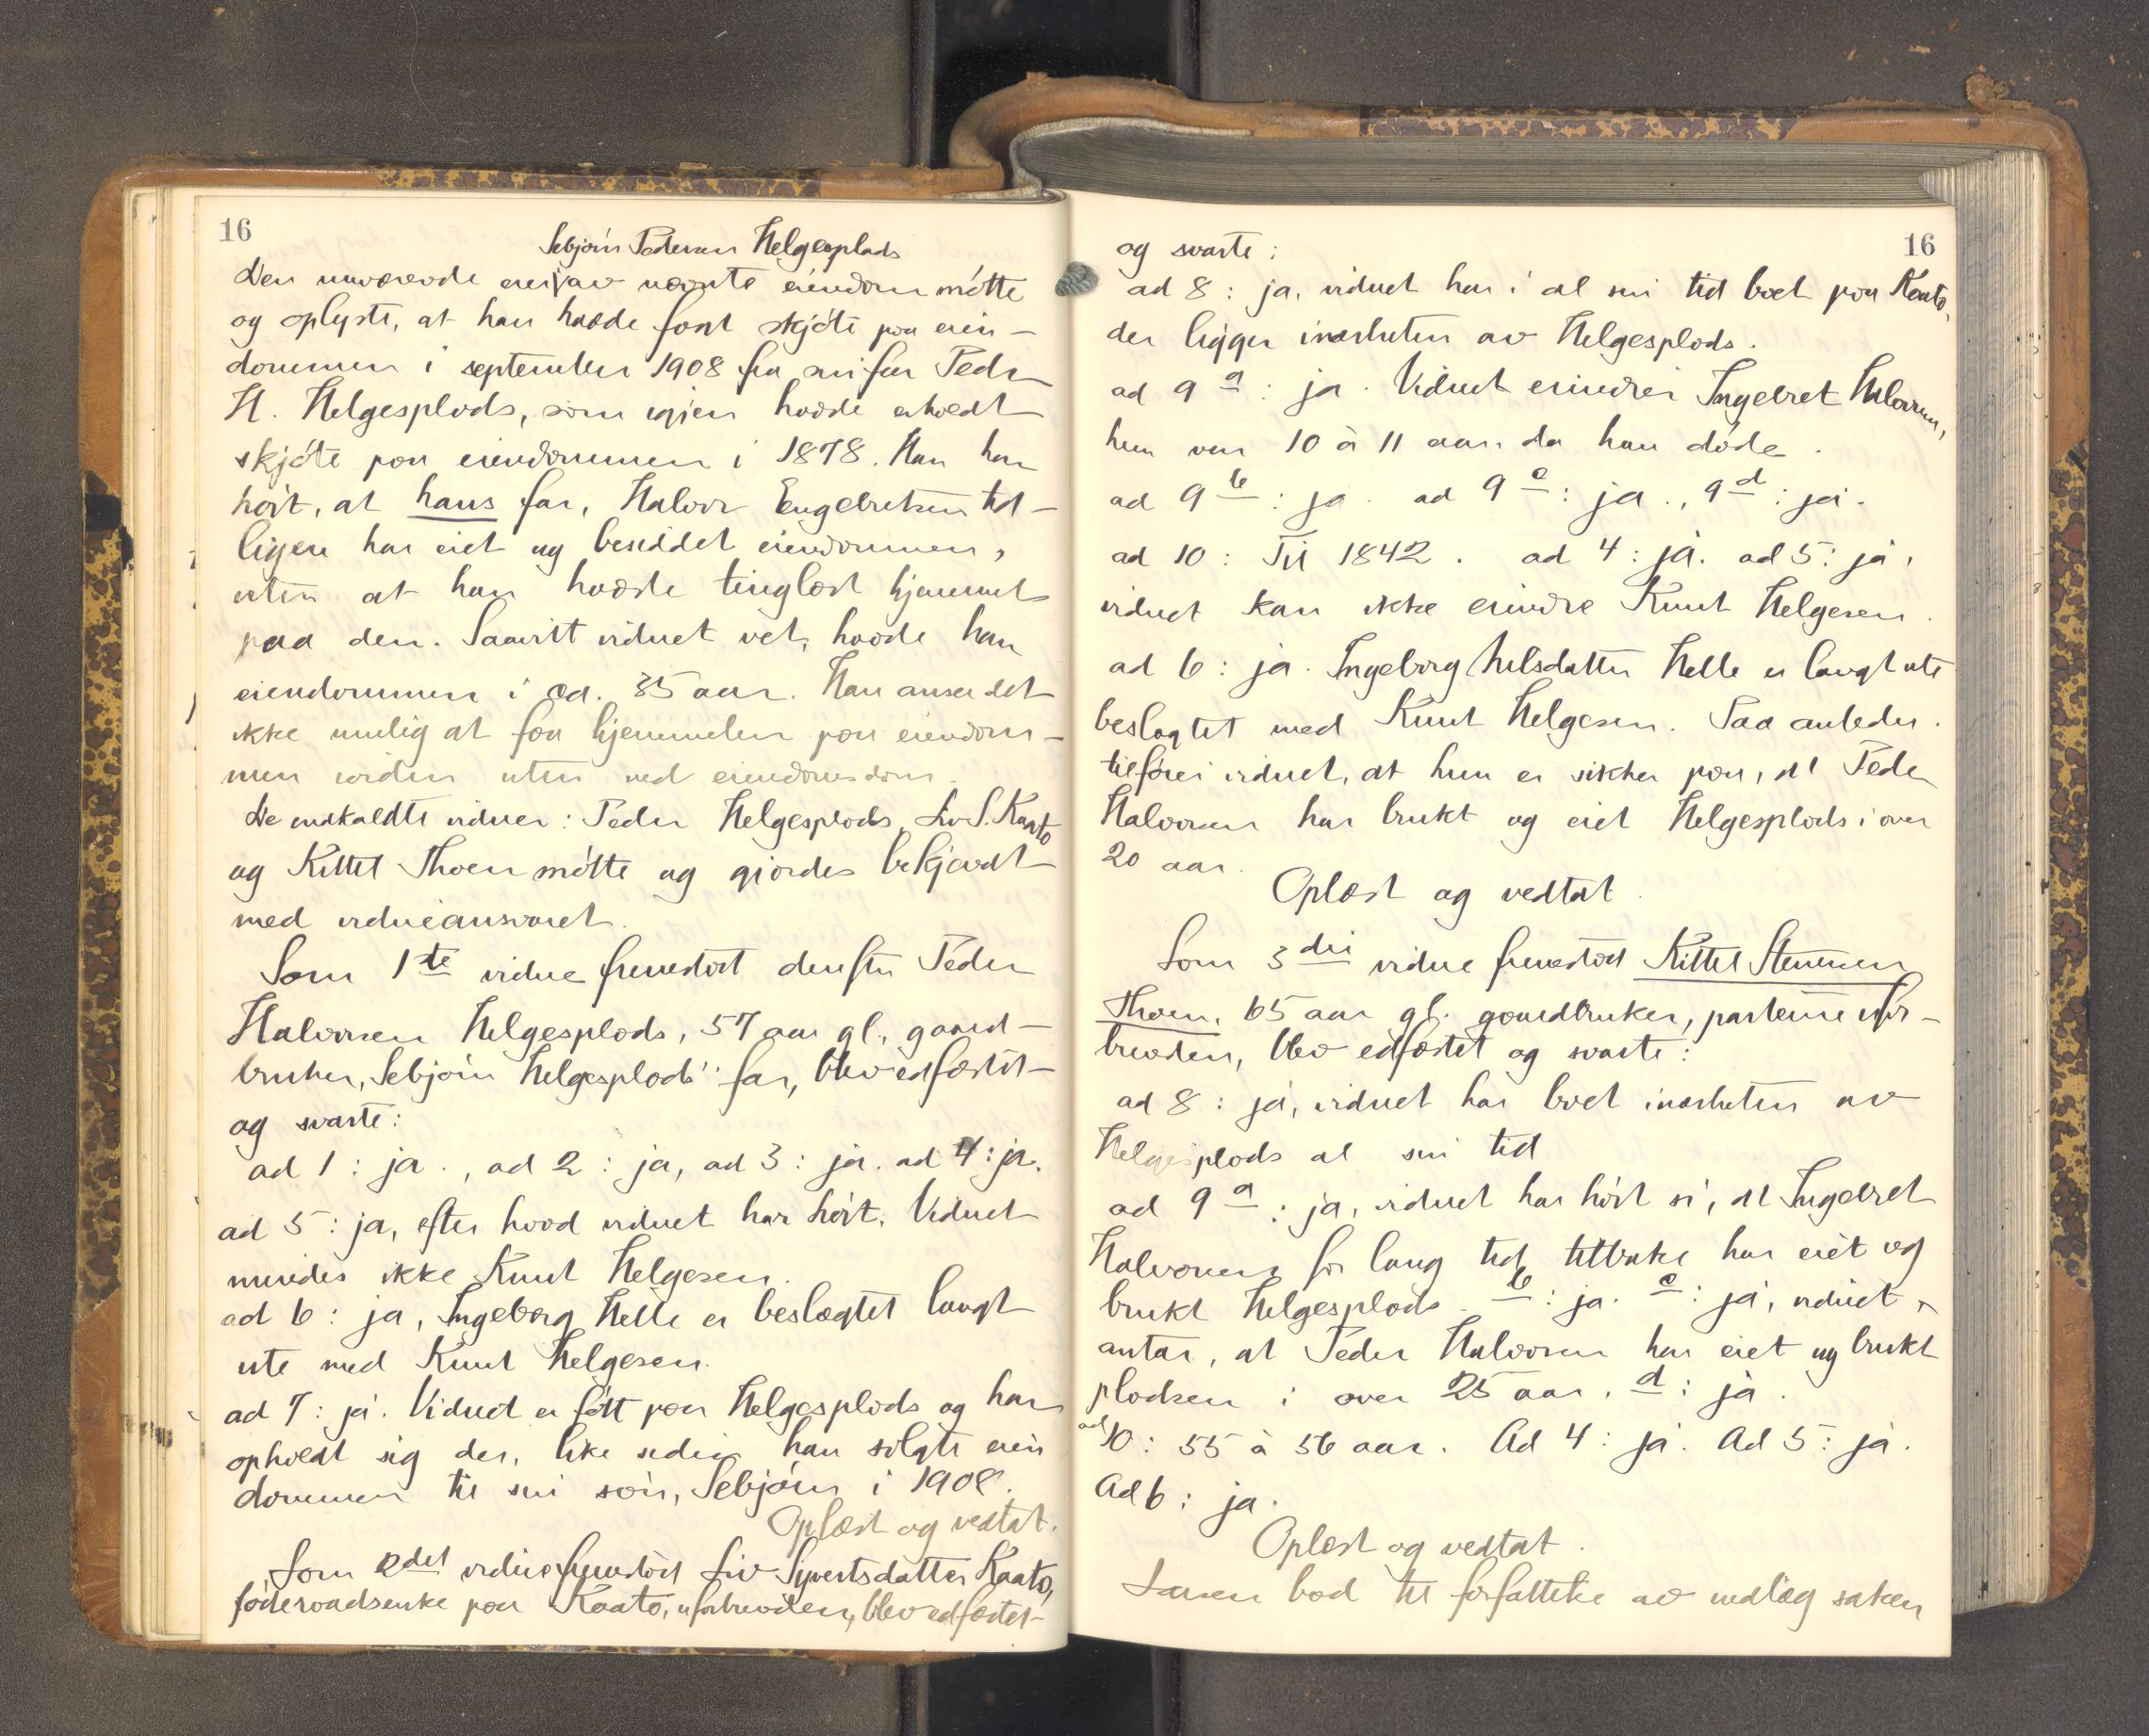 16
Sebjørn Pedersen Helgesplads
Den nuværende eier av nævnte eiendom møtte
og oplyste, at han hadde faat skjøte paa eien-
dommen i september 1908 fra sin far Peder
H. Helgesplads, som igjen hadde erholdt
skjøte paa eiendommen i 1878. Han har
hørt, at hans far, Halvor Engebretsen tid-
ligere har eiet og besiddet eiendommen,
uten at han hadde tinglæst hjemmel
paa den. Saavitt vidnet vet, hadde han
eiendommen i ca. 35 aar. Han anser det
ikke mulig at faa hjemmelen paa eiendom-
men iorden uten ved eiendomsdom.
De indkaldte vidner: Peder Helgesplads, Liv S. Kaato
og Kittel Thoen møtte og gjordes bekjendt
med vidneansvaret.
Som 1te vidne fremstod derefter Peder
Halvorsen Helgesplads, 57 aar gl., gaard-
bruker, Sebjørn Helgesplads' far, blev edfæstet
og svarte:
ad 1: ja., ad 2: ja, ad 3: ja. ad 4: ja.
ad 5: ja, efter hvad vidnet har hørt. Vidnet
mindes ikke Knut Helgesen.
ad 6: ja, Ingeborg Helle er beslægtet langt
ute med Knut Helgesen.
ad 7: ja. Vidnet er født paa Helgesplads og har
opholdt sig der, like siden han solgte eien
dommen til sin søn, Sebjørn i 1908.
Oplæst og vedtat.
Som 2det vidne fremstod Liv Syvertsdatter Kaato,
føderaadsenke paa Kaato, uforbunden, blev edfæstet
16
og svarte:
ad 8: ja, vidnet har i al sin tid boet paa Kaato,
der ligger inærheten av Helgesplads.
ad 9 a: ja. Vidnet erindrer Ingebret Halvorsen,
hun var 10 à 11 aar, da han døde.
ad 9 b: ja. ad 9 c: ja., 9 d: ja.
ad 10: Til 1842. ad 4: ja. ad 5: ja,
vidnet kan ikke erindre Knut Helgesen.
ad 6: ja. Ingeborg Nelsdatter Helle er langt ute
beslægtet med Knut Helgesen. Paa anledn.
tilføier vidnet, at hun er sikker paa, at Peder
Halvorsen har brukt og eiet Helgesplads i over
20 aar.
Oplæst og vedtat.
Som 3die vidne fremstod Kittel Stenersen
Thoen, 65 aar gl. gaardbruker, parterne ufor-
bunden, blev edfæstet og svarte:
ad 8: ja, vidnet har boet inærheten av
Helgesplads al sin tid
ad 9 a: ja, vidnet har hørt si, at Ingebret
Halvorsen for lang tid tilbake har eiet og
brukt Helgesplads. b: ja. c: ja, vidnet
antar, at Peder Halvorsen har eiet og brukt
pladsen i over 25 aar. d: ja.
ad 10: 55 à 56 aar. Ad 4: ja. Ad 5: ja.
Ad 6: ja.
Oplæst og vedtat.
bad til forfattelse av indlæg saken